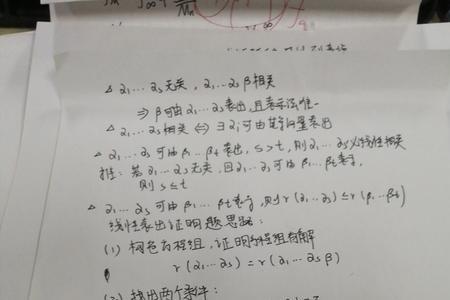 △ α₁…αs 无关，α₁…αs β 相关
⇒ β可由 α₁…αs 表出，且表示法唯一
△ α₁…αs 相关 ⇔ ∃ αi 可由其余向量表出
△ α₁…αs 可由 β₁…βt 表出，s>t，则 α₁…αs 必线性相关
推：若 α₁…αs 无关，且 α₁…αs 可由 β₁…βt 表示，
则 s≤t
△ α₁…αs 可由 β₁…βt 表示，则 r(α₁…αs) ≤ r(β₁…βt)
线性表出证明题思路：
(1) 构造方程组，证明方程组有解
r(α₁…αs) = r(α₁…αs β)
(2) 找出两个条件：